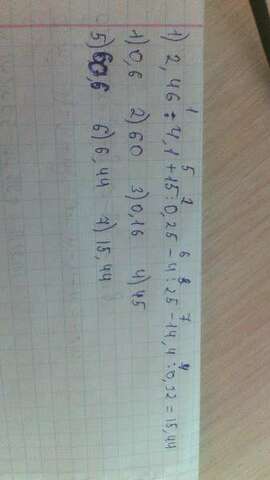 1) 2,46 : 4,1 + 15 : 0,25 - 4 : 25 - 14,4 : 0,32 = 15,44
1) 0,6 2) 60 3) 0,16 4) 45
5) 60,6 6) 6,44 7) 15,44